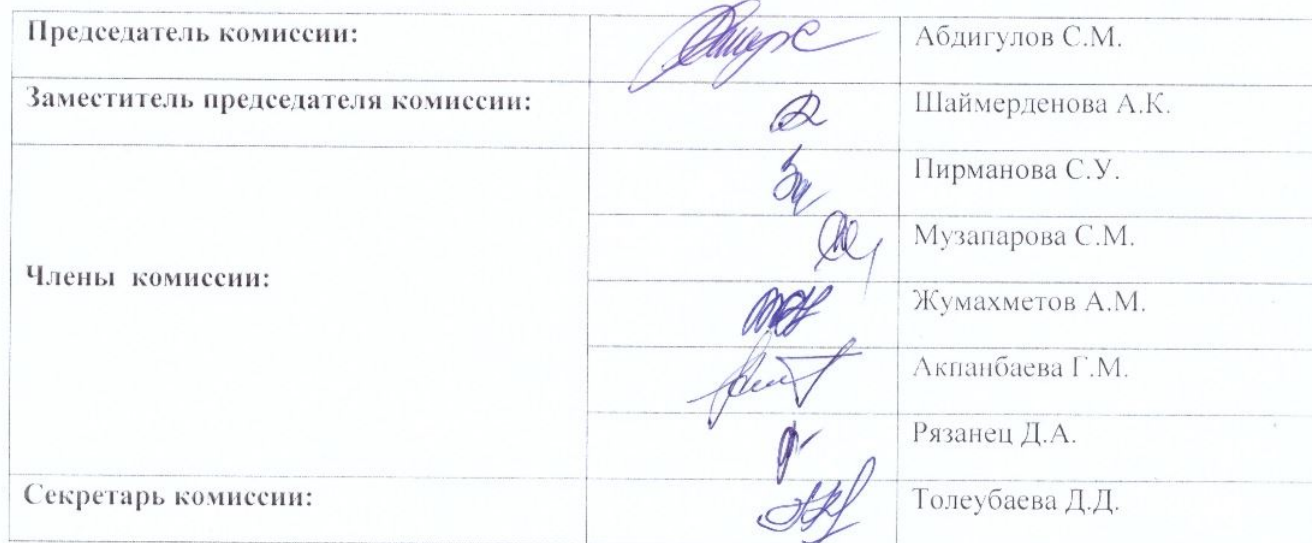 Председатель комиссии: Абдигулов С.М.
Заместитель председателя комиссии: Шаймерденова А.К.
Пирманова С.У.
Музапарова С.М.
Члены комиссии:
Жумахметов А.М.
Акпанбаева Г.М.
Рязанец Д.А.
Секретарь комиссии: Толеубаева Д.Д.